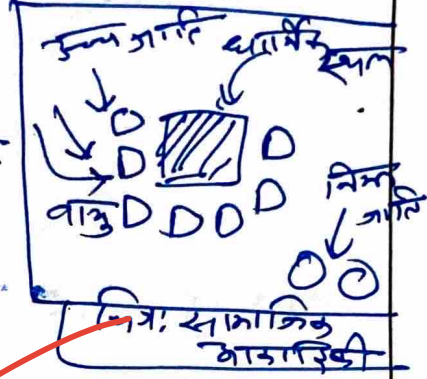 उच्च जाति
धार्मिक
स्थल
वायु
निम्न
जाति
चित्र: सामाजिक